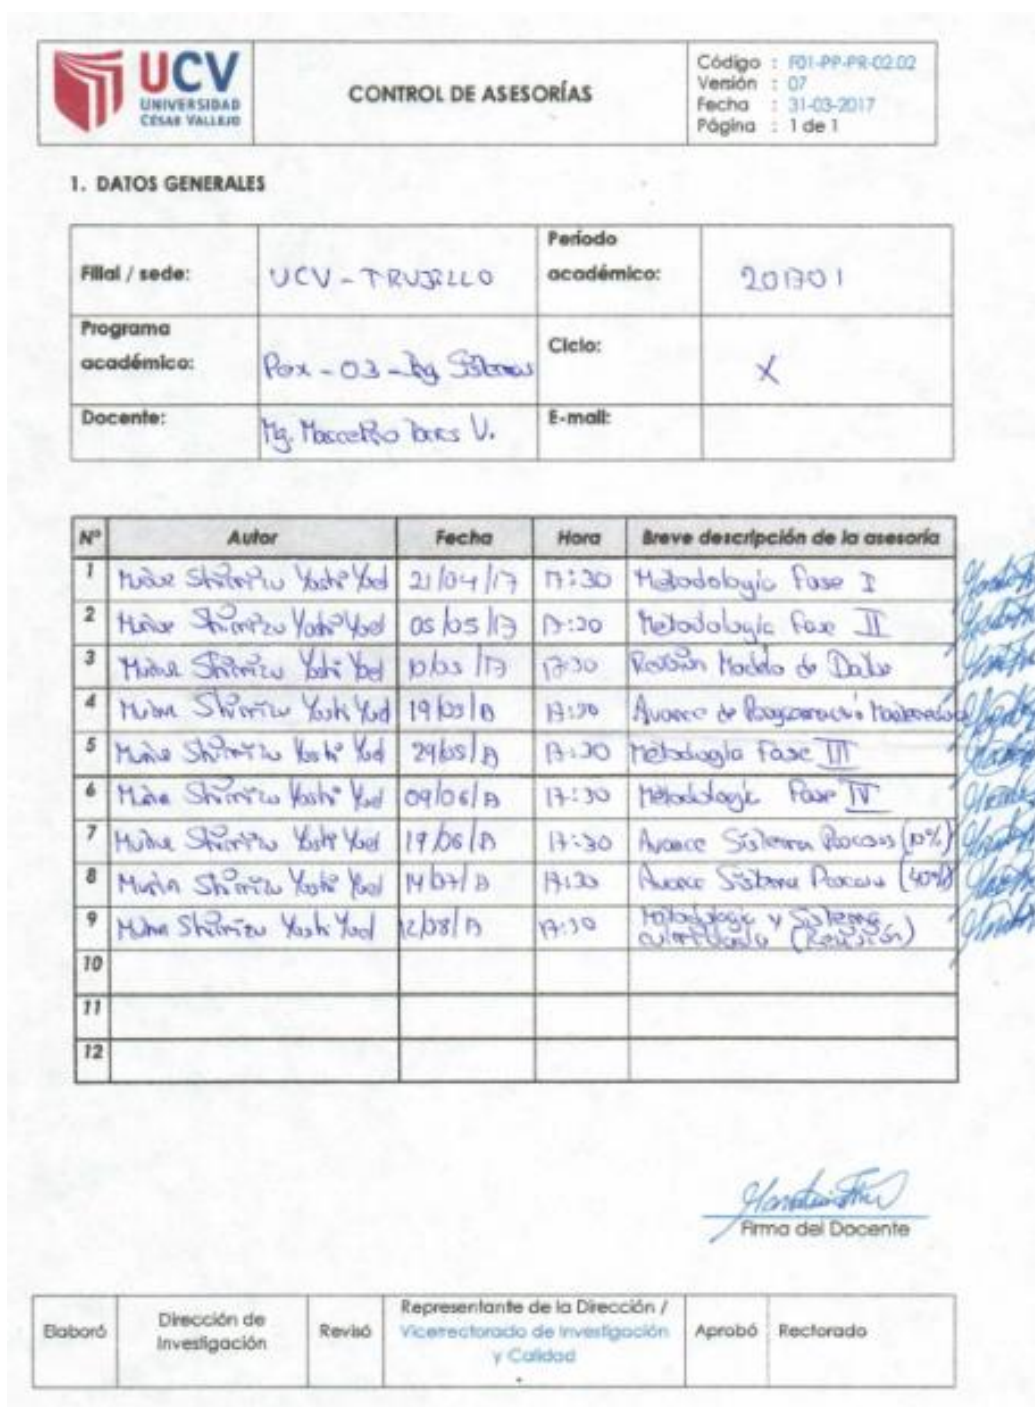 UCV
UNIVERSIDAD
CÉSAR VALLEJO
CONTROL DE ASESORÍAS
Código : F01-PP-PR-02.02
Versión : 07
Fecha : 31-03-2017
Página : 1 de 1
1. DATOS GENERALES
Filial / sede: UCV - TRUJILLO
Período académico: 201701
Programa académico: - 03 - Ing Sistemas
Ciclo: X
Docente: Mg. V.
E-mail:
Nº Autor Fecha Hora Breve descripción de la asesoría
1 Shimizu Yoshi Yoel 21/04/17 17:30 Metodología Fase I
2 Shimizu Yoshi Yoel 05/05/17 17:30 Metodología Fase II
3 Shimizu Yoshi Yoel 17:30 Revisión Modelo de Datos
4 Shimizu Yoshi Yoel 19/05/17 17:30 Avance de Programación
5 Shimizu Yoshi Yoel 29/05/17 17:30 Metodología Fase III
6 Shimizu Yoshi Yoel 09/06/17 17:30 Metodología Fase IV
7 Shimizu Yoshi Yoel 19/06/17 17:30 Avance Sistema Procesos (10%)
8 Shimizu Yoshi Yoel 14/07/17 17:30 Avance Sistema Procesos (40%)
9 Shimizu Yoshi Yoel 12/08/17 17:30 Metodología y Sistema
culminado (Revisión)
10
11
12
Firma del Docente
Elaboró
Dirección de
Investigación
Revisó
Representante de la Dirección /
Vicerrectorado de Investigación
y Calidad
Aprobó
Rectorado